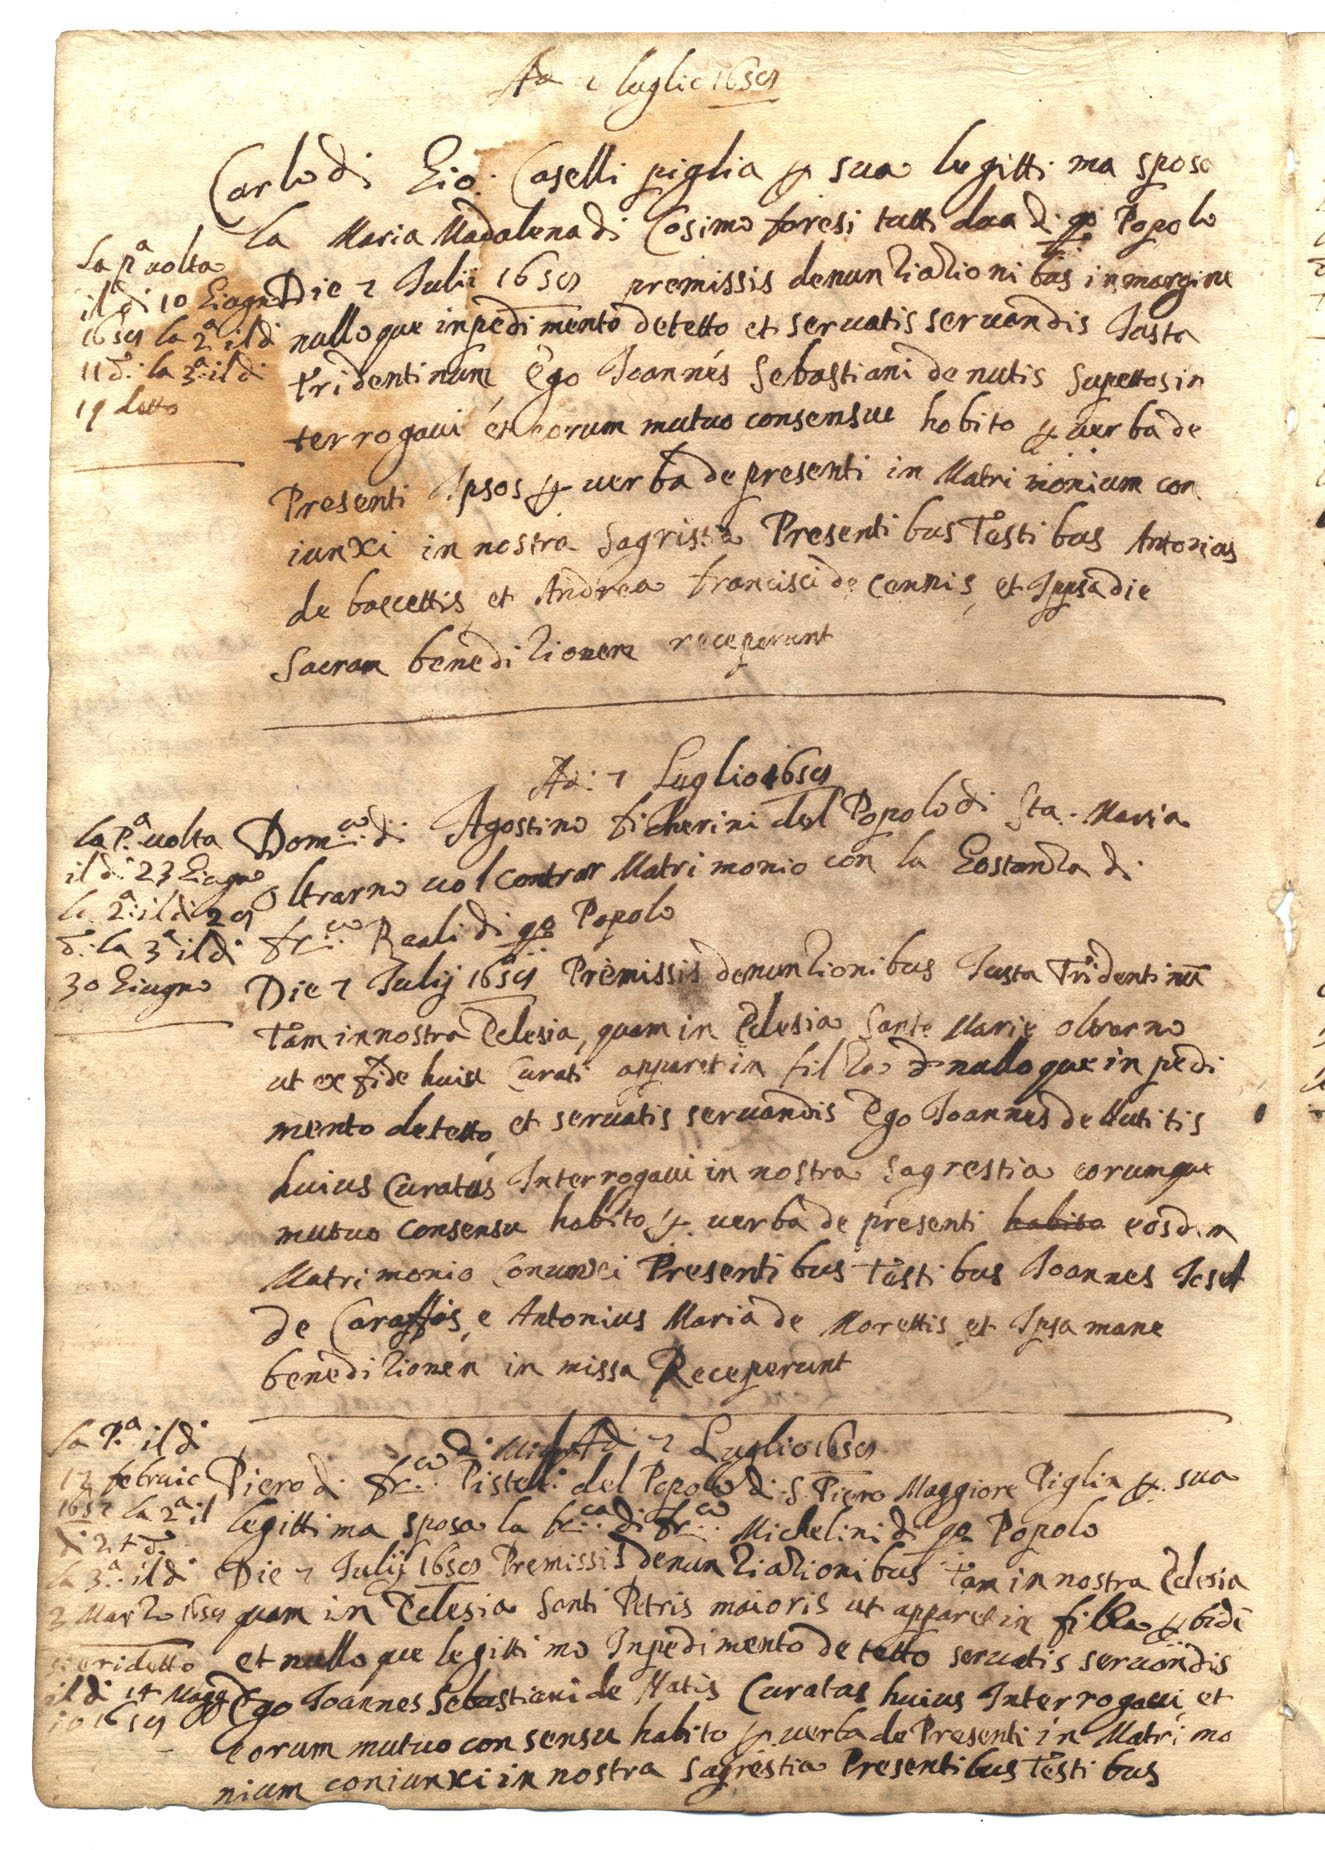 Ad 7 luglio 1659
Carlo di Gio: Caselli piglia p sua legitti ma sposa
la Maria Madalena di Cosimo foresi tutti dua di qo Popolo
la pa uolta
il di 10 Giugno
1659 la 2a il di
11 do: la 3a: il di
19 detto
Die 7 Julii 1659 premissis denuntiationi bus in margine
nulloque inpedimento detetto et seruatis seruandis Justa
tridentinum, Ego Joannes Sebastiani de nutis Supettos in
terrogaui et eorum mutuo consensue hobito p uerba de
Presenti Ipsos p uerba de presenti in Matri monium con
iunxi in nostra Sagristia Presenti bus Testi bus Antonius
de baccettis et Andrea francisci de Cennis, et Ippsa die
Sacram beneditionem receperunt
Ad: 7 Luglio 1659
la P.a uolta
il di 23 Giugno
la 2a: il di 29
do: la 3a il di
30 Giugno
Dom.co di Agostino ficherini del Popolo di Sta. Maria
Oltrarno uol contrar Matrimonio con la Gostanza di
fr.co Reali di qo Popolo
Die 7 Julij 1659 Premissis denuntionibus Justa Tridentinu
Tam in nostra Eclesia, quam in Eclesia Sante Marie oltrarno
ut ex fide huius Curati apparet in filza et nulloque in pedi
mento detetto, et seruatis seruandis Ego Joannes de Nuti tis
huius Curatus Interrogaui in nostra Sagrestia eorumque
mutuo consensu habito p uerba de presenti habito eosdem
Matrimonio Coniunxi Presenti bus Testi bus Joannes Josef
de Caraffis, e Antonius Maria de Morettis et Ipsa mane
beneditionen in missa Receperunt
Ad: 7 Luglio 1659
la P.a il di
17 febraio
la 2a il
di 24 do
la 3a: il di
2 Marzo 1659
il di 14 Magg
io 1659
Piero di fr.co Pistelli del Popolo di S. Piero Maggiore Piglia p. sua
legittima sposa la fr.ca di fr.co Michelini di qo Popolo
Die 7 Julij 1659 Premissis denuntiationibus tam in nostra Eclesia
quam in Eclesia Santi Petris maioris ut apparet in filza p fide
et nulloque legitti mo Inpedimento detetto seruatis seruandis
Ego Joannes Sebastiani de Natis Curatus huius Interrogaui, et
eorum mutuo consensu habito p. uerba de Presenti in Matri mo
nium coniunxi in nostra Sagrestia Presentibus Testi bus